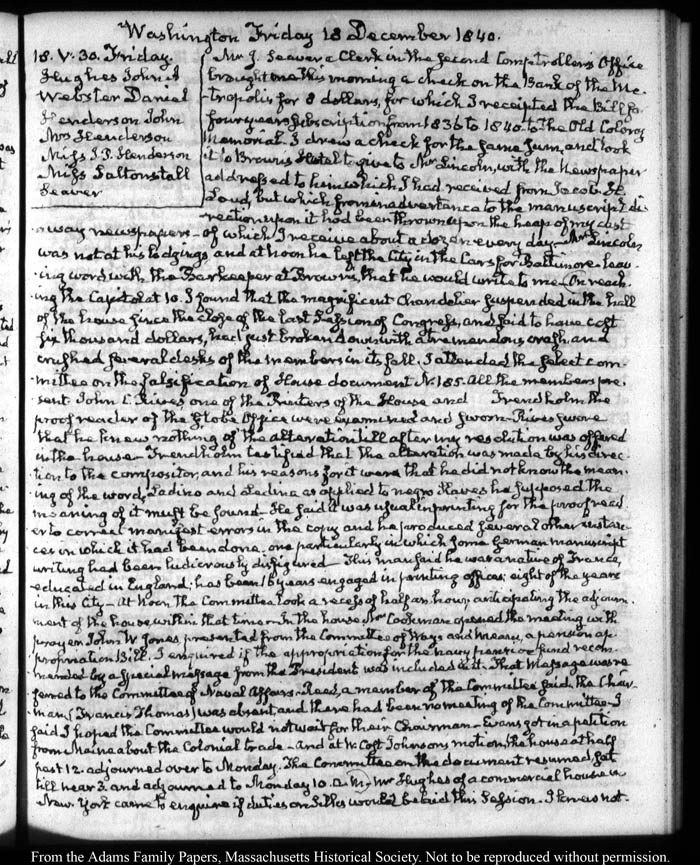 Washington Friday 18 December 1840.
18. V. 30. Friday.
Hughes John A
Webster Daniel
Henderson John
Mrs Henderson
Miss J. P. Henderson
Miss Saltonstall
Seaver
Mr J. Seaver a Clerk in the Second Comptroller's Office
brought me this morning a check on the Bank of the Me-
-tropolis for 8 dollars, for which I receipted the Bill for
four years Subscription from 1836 to 1840 to the Old Colony
Memorial. I drew a check for the same sum, and took
it to Brown's Hotel to give to Mr Lincoln, with the Newspaper
addressed to him which I had received from Jacob H.
Loud, but which from inadvertance to the manuscript di-
-rection upon it had been thrown upon the heap of my cast
away newspapers - of which I receive about a dozen every day - Mr Lincoln
was not at his lodgings and at noon he left the City in the Cars for Baltimore leav-
-ing word with the Barkeeper at Brown's, that he would write to me - On reach-
ing the Capitol at 10. I found that the magnificent Chandelier suspended in the hall
of the house since the close of the last Session of Congress, and said to have cost
six thousand dollars, had just broken down with a tremendous crash and
crushed several desks of the members in its fall. I attended the select com-
-mittee on the falsification of House document N. 185. All the members pre-
-sent. John C. Rives one of the Printers of the House and Trenholm the
proof reader of the Globe Office were examined and sworn - Rives swore
that he knew nothing of the alteration till after my resolution was offered
in the house - Trendholm testified that the alteration was made by his direc-
-tion to the compositor, and his reasons for it were that he did not know the mean-
-ing of the word, Ladino and Ladina as applied to negro slaves he supposed the
meaning of it must be sound - He said it was usual in printing for the proof read-
er to correct manifest errors in the copy and he produced several other instan-
ces in which it had been done. one particularly in which some German manuscript
writing had been ludicrously disfigured - This man said he was a native of France,
educated in England; has been 16 years engaged in printing offices; eight of the years
in this City - At Noon, the Committee took a recess of half an hour, anticipating the adjourn-
ment of the house, within that time - In the house Mr Cookman opened the meeting with
prayer. John W. Jones presented from the Committee of Ways and Means, a pension ap-
propriation Bill. I enquired if the appropriation for the navy pension fund recom-
mended by a special message from the President was included in it. That Message was re-
ferred to the Committee of Naval Affairs - Reed, a member of the Committee said the Chair-
man, (Francis Thomas) was absent, and there had been no meeting of the Committee - I
said I hoped the Committee would not wait for their Chairman - Evans got in a petition
from Maine about the Colonial trade - And at W. Cost Johnson's motion, the house at half
past 12. adjourned over to Monday. The Committee on the document resumed, sat
till near 3. and adjourned to Monday 10. a.m. - Mr Hughes of a commercial house in
New York came to enquire if duties on Silks would be laid this Session. I knew not.
From the Adams Family Papers, Massachusetts Historical Society. Not to be reproduced without permission.